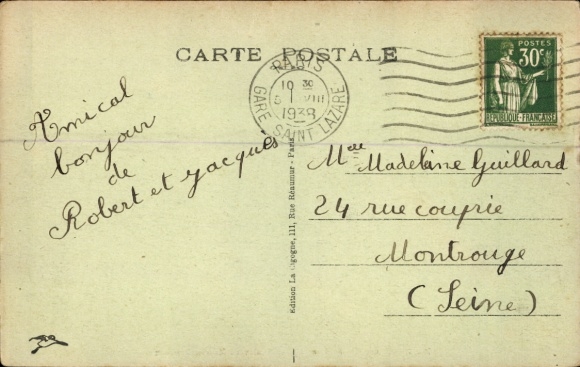 CARTE POSTALE
PARIS
GARE SAINT-LAZARE
10 30
VIII
1938
POSTES
30c
REPUBLIQUE-FRANÇAISE
Amical
bonjour
de
Robert et Jacques
Edition La Cigogne, 111, Rue Réaumur - Paris
Melle Madeline Guillard
24 rue couprie
Montrouge
(Seine)